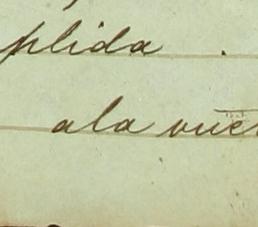 plida .
ala vuel